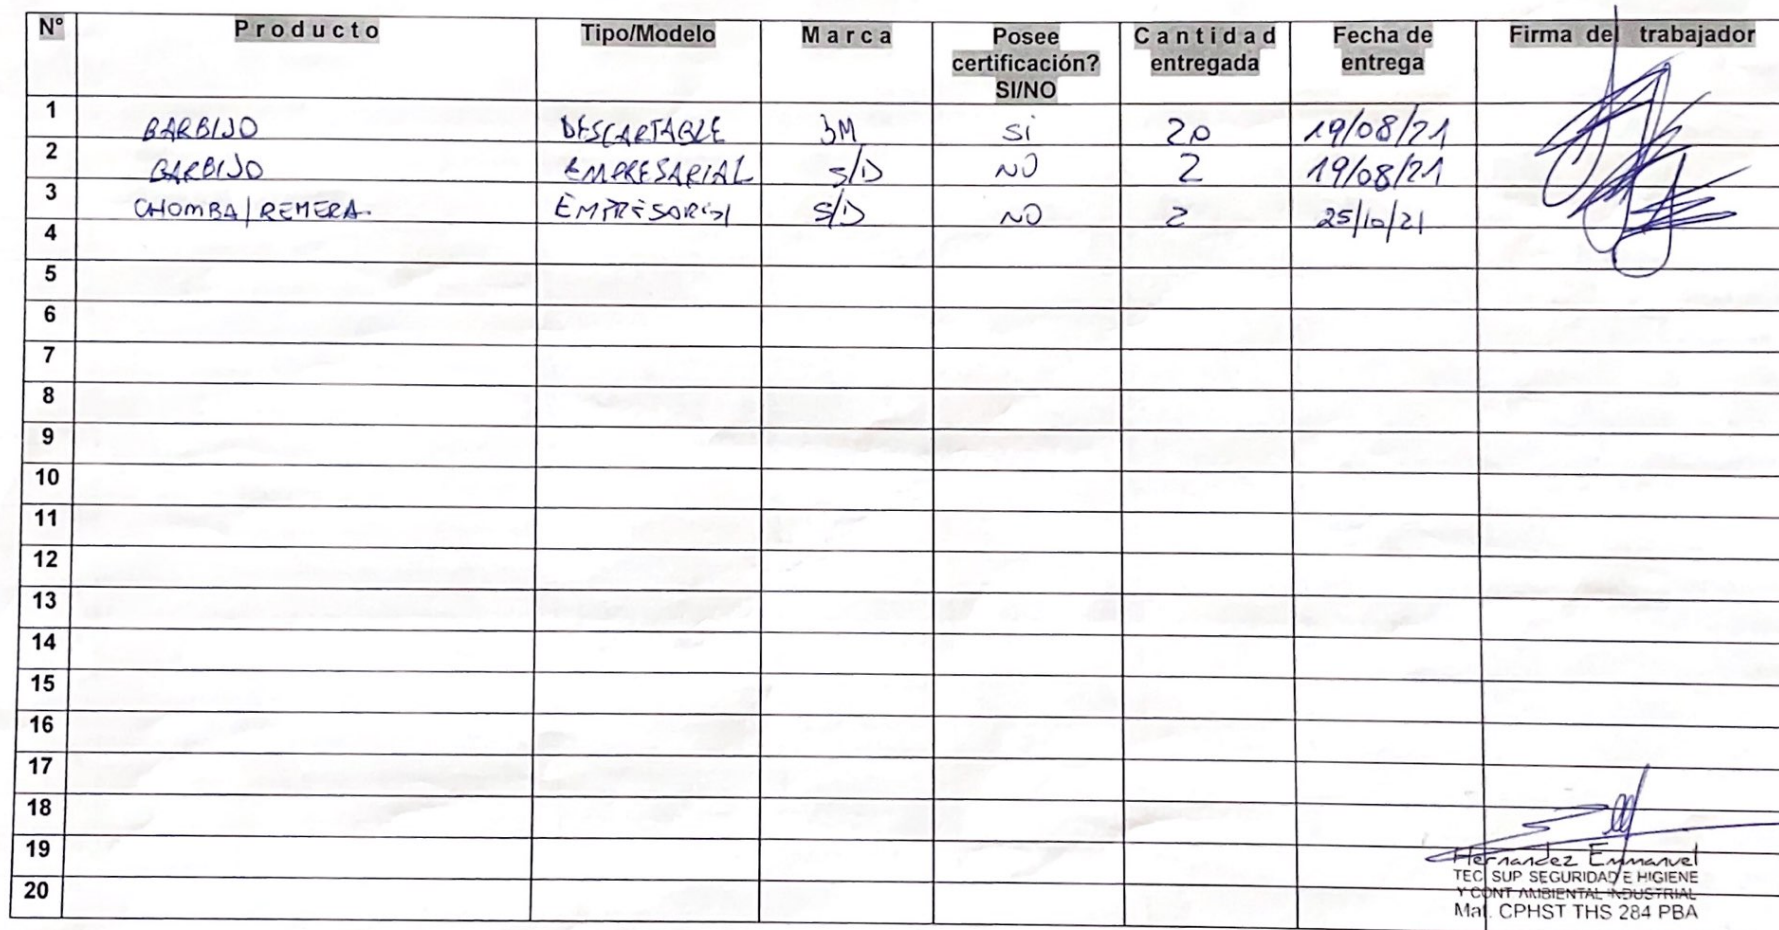 N° Producto Tipo/Modelo Marca Posee certificación? SI/NO Cantidad entregada Fecha de entrega Firma del trabajador
1 BARBIJO DESCARTABLE 3M SI 20 19/08/21
2 BARBIJO EMPRESARIAL S/D NO 2 19/08/21
3 CHOMBA/REMERA. EMPRESARIAl S/D NO 2 25/10/21
4
5
6
7
8
9
10
11
12
13
14
15
16
17
18
19
20
Hernandez Emmanuel
TEC SUP SEGURIDAD E HIGIENE
Y CONT AMBIENTAL INDUSTRIAL
Mat. CPHST THS 284 PBA